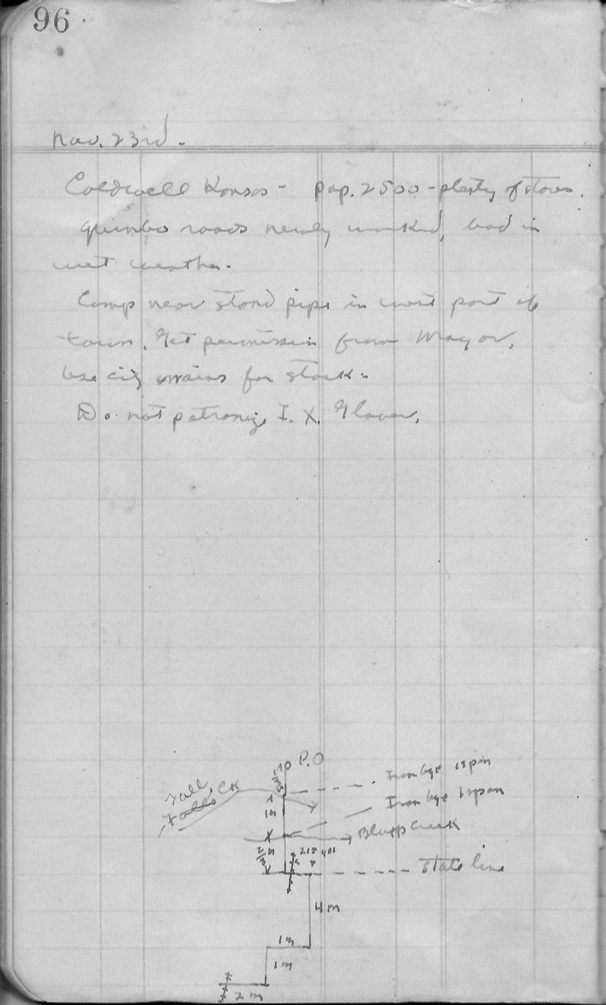 96
Nov. 23rd.
Caldwell Kansas - pop. 2500 - plenty of stores.
gumbo roads newly worked, bad in
wet weather.
Camp near stand pipe in west part of
town. Get permission from Mayor.
Use city mains for stock.
Do not patronize I. X. Glover.
To P.O
Iron bge 1 span
Fall Ck
Falls
1 m
Iron bge 1 span
Bluff Creek
State line
4 m
1 m
1 m
2 m